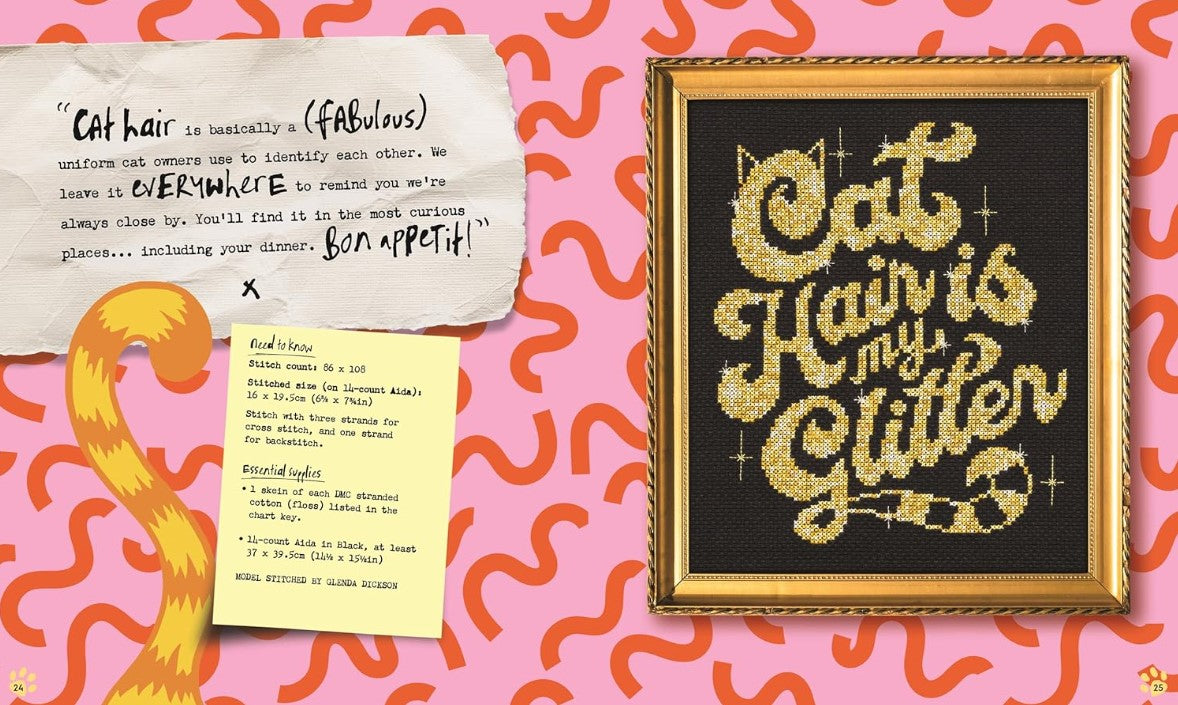 "CAt hair is basically a (fABulous)
uniform cat owners use to identify each other. We
leave it evERYwhErE to remind you we're
always close by. You'll find it in the most curious
places... including your dinner. Bon appetit!"
x
Need to know
Stitch count: 86 x 108
Stitched size (on 14-count Aida):
16 x 19.5cm (6⅜ x 7¾in)
Stitch with three strands for
cross stitch, and one strand
for backstitch.
Essential supplies
• 1 skein of each DMC stranded
cotton (floss) listed in the
chart key.
• 14-count Aida in Black, at least
37 x 39.5cm (14½ x 15½in)
MODEL STITCHED BY GLENDA DICKSON
24
Cat
Hair is
my
Glitter
25